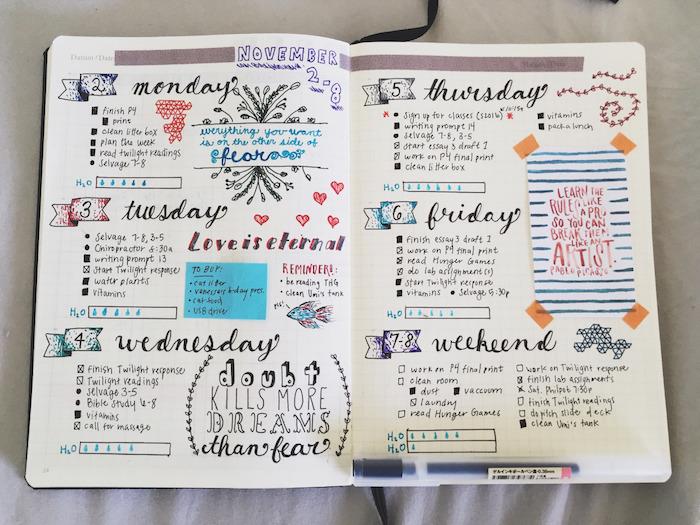 Datum / Date
NOVEMBER
2-8
2 monday
finish P4
print
clean litter box
plan the week
read twilight readings
selvage 7-8
H₂O
everything you want
is on the other side of
fear
3 tuesday
selvage 7-8, 3-5
Chiropractor
writing prompt 13
start Twilight response
water plants
vitamins
H₂O
Love is eternal
TO BUY:
cat litter
cat food
USB drive
REMINDERS:
be reading THG
clean Uni's tank
4 wednesday
finish Twilight response
Twilight readings
selvage 3-5
Bible Study 6-8
vitamins
call for massage
H₂O
doubt
KILLS MORE
DREAMS
than fear
Datum / Date
5 thursday
sign up for classes (S2016)
writing prompt 14
selvage 7-8, 3-5
start essay 3 draft 1
work on P4 final print
clean litter box
vitamins
pack a lunch
H₂O
6 friday
finish essay 3 draft 1
work on P4 final print
read Hunger Games
do lab assignment(s)
start Twilight response
vitamins
selvage 5:30p
H₂O
LEARN THE
RULES LIKE
A PRO
SO YOU CAN
BREAK THEM
LIKE AN
ARTIST.
PABLO PICASSO
7-8 weekend
work on P4 final print
clean room
dust
vaccuum
laundry
read Hunger Games
work on Twilight response
finish lab assignments
Sat. Philpot 7:30p
finish Twilight readings
do pitch slide deck
clean Uni's tank
H₂O
H₂O
ゲルインキボールペン 0.38mm